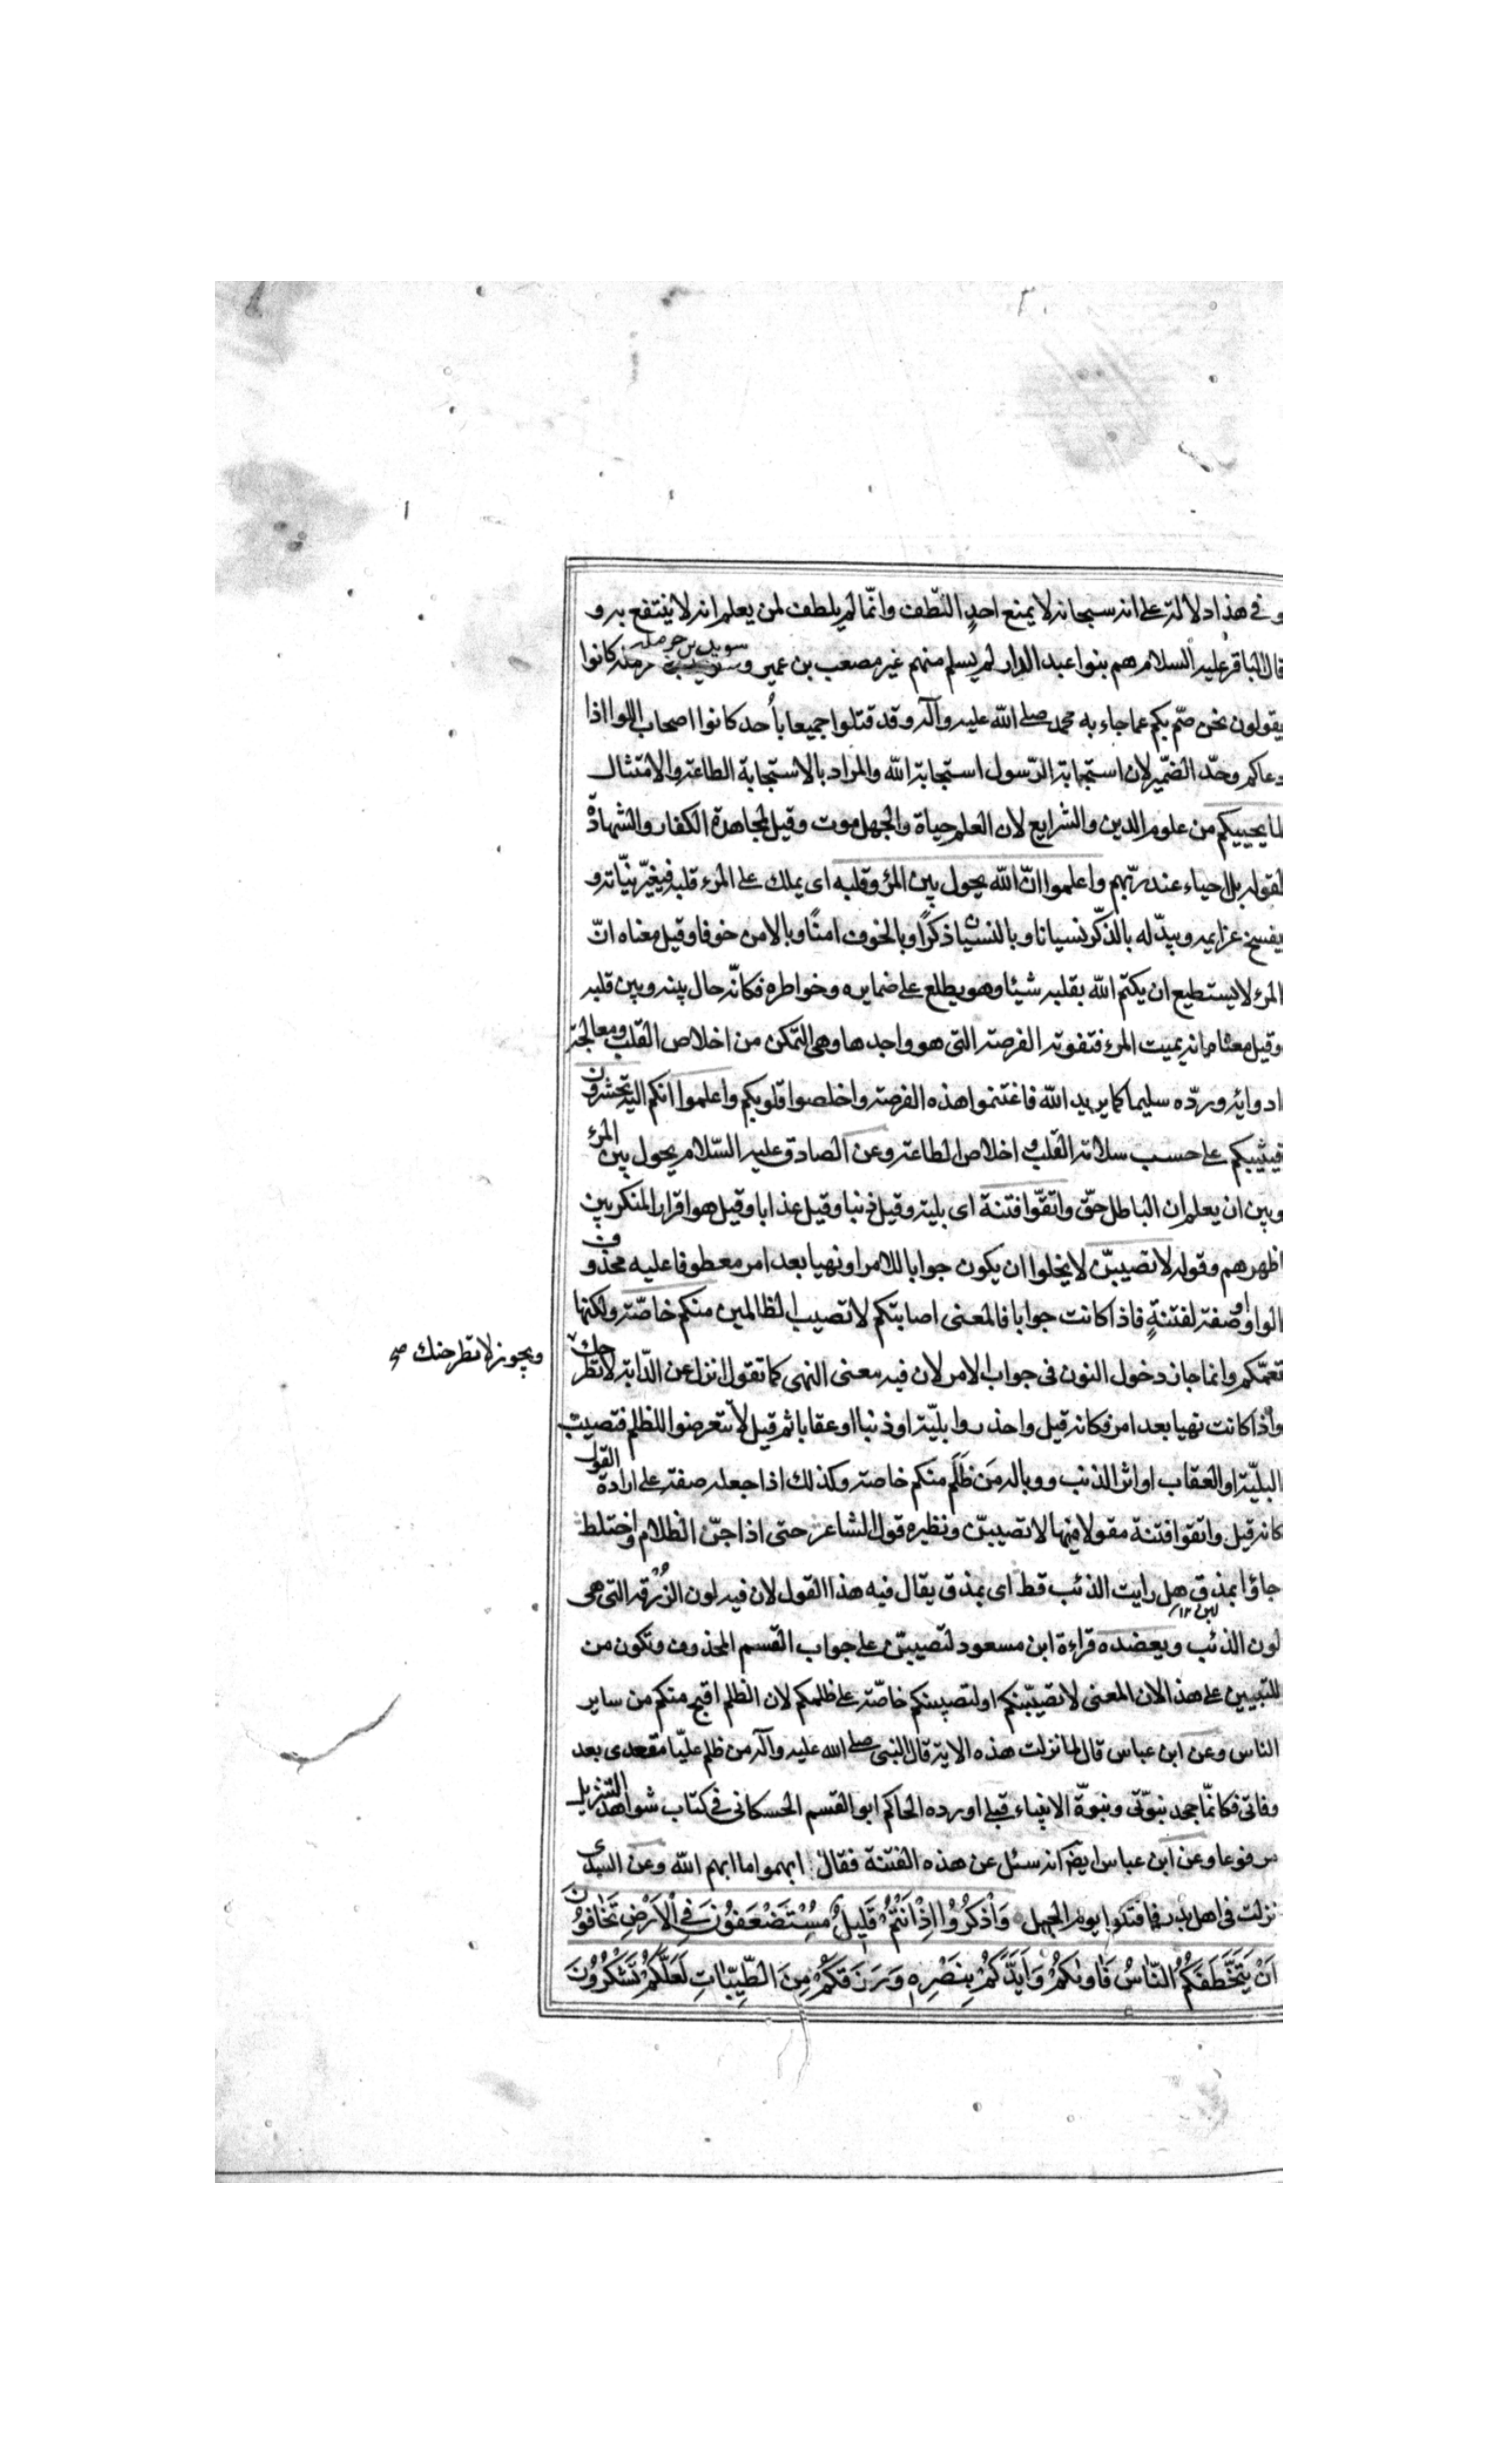 و في هذا دلالة على انه سبحانه لا يمنع احد اللّطف وانّما لم يلطف لمن يعلم انه لا ينتفع به و
قال الباقر عليه السلام هم بنوا عبد الدار لم يسلم منهم غير مصعب بن عمير و سويد بن حرملة كانوا
يقولون نحن صمّ بكم عما جاء به محمد صلى الله عليه وآله وقد قتلوا جميعا بأحد كانوا اصحاب اللوا اذا
دعاكم وحّد الضمير لان استجابة الرّسول استجابة الله والمراد بالاستجابة الطاعة والامتثال
لما يحييكم من علوم الدين والشرايع لان العلم حياة والجهل موت وقيل لمجاهدة الكفار والشهادة
لقوله بل احياء عند ربّهم واعلموا انّ الله يحول بين المرؤ وقلبه اى يملك على المرء قلبه فيغيّر نيّاته و
يفسخ عزايمه ويبدّله بالذّكر نسيانا وبالنسيان ذكرًا وبالخوف امنًا وبالامن خوفا وقيل معناه انّ
المرء لا يستطيع ان يكتم الله بقلبه شيئا وهو يطلع على ضمايره وخواطره فكانّه حال بينه وبين قلبه
وقيل معناه انه يميت المرء فتفوته الفرصة التى هو واجدها وهى التمكن من اخلاص القلب ومعالجة
ادوائه وردّه سليما كما يريد الله فاغتنموا هذه الفرصة واخلصوا قلوبكم واعلموا انكم اليه تحشرون
فيثيبكم على حسب سلامة القلب و اخلاص الطاعة وعن الصادق عليه السّلام يحول بين المرء
وبين ان يعلم ان الباطل حقّ واتّقوا فتنة اى بلية وقيل ذنبا وقيل عذابا وقيل هو اقرار المنكر بين
اظهرهم وقوله لا تصيبنّ لا يخلوا ان يكون جوابا للامر او نهيا بعد امر معطوفا عليه محذوف
الواو او صفة لفتنةٍ فاذا كانت جوابا فالمعنى اصابتكم لا تصيب الظالمين منكم خاصّة ولكنها
تعمّكم وانما جاز دخول النون فى جواب الامر لان فيه معنى النهى كما تقول انزل عن الدّابة لا تطرحك
ويجوز لا تطرحنك صح
واذا كانت نهيا بعد امر فكانه قيل واحذروا بليّة او ذنبا او عقابا ثم قيل لا تتعرضوا للظلم فتصيب
البليّة او العقاب او اثر الذنب ووباله مَن ظَلَم منكم خاصة وكذلك اذا جعله صفة على ارادة القول
كانه قيل واتقوا فتنة مقولا فيها لا تصيبنّ ونظيره قول الشاعر حتى اذا جنّ الظلام واختلط
جاؤا بمذق هل رايت الذئب قط اى بمذق يقال فيه هذا القول لان فيه لون الزُرقة التى هى
لبن ١٢
لون الذئب ويعضده قراءة ابن مسعود لتصيبنّ على جواب القسم المحذوف وتكون من
للتبيين على هذا لان المعنى لا تصيبنّكم او لتصيبنكم خاصّة على ظلمكم لان الظلم اقبح منكم من ساير
الناس وعن ابن عباس قال لما نزلت هذه الاية قال النبى صلى الله عليه وآله من ظلم عليّا مقعدى بعد
وفاتى فكانمّا جحد نبوّتى ونبوّة الانبياء قبلى اورده الحاكم ابو القسم الحسكانى فى كتاب شواهد التنزيل
مرفوعا وعن ابن عباس ايضا انه سئل عن هذه الفتنة فقال ابهموا ما ابهم الله وعن السدى
نزلت فى اهل بدر فاقتتلوا يوم الجمل وَاذْكُرُوْا اِذْ اَنْتُمْ قَلِيلٌ مُسْتَضْعَفُوْنَ فِى الْاَرْضِ تَخَافُوْنَ
اَنْ يَتَخَطَّفَكُمُ النَّاسُ فَاوٰيكُمْ وَاَيَّدَكُمْ بِنَصْرِهٖ وَرَزَقَكُمْ مِنَ الطَّيِّبَاتِ لَعَلَّكُمْ تَشْكُرُوْنَ